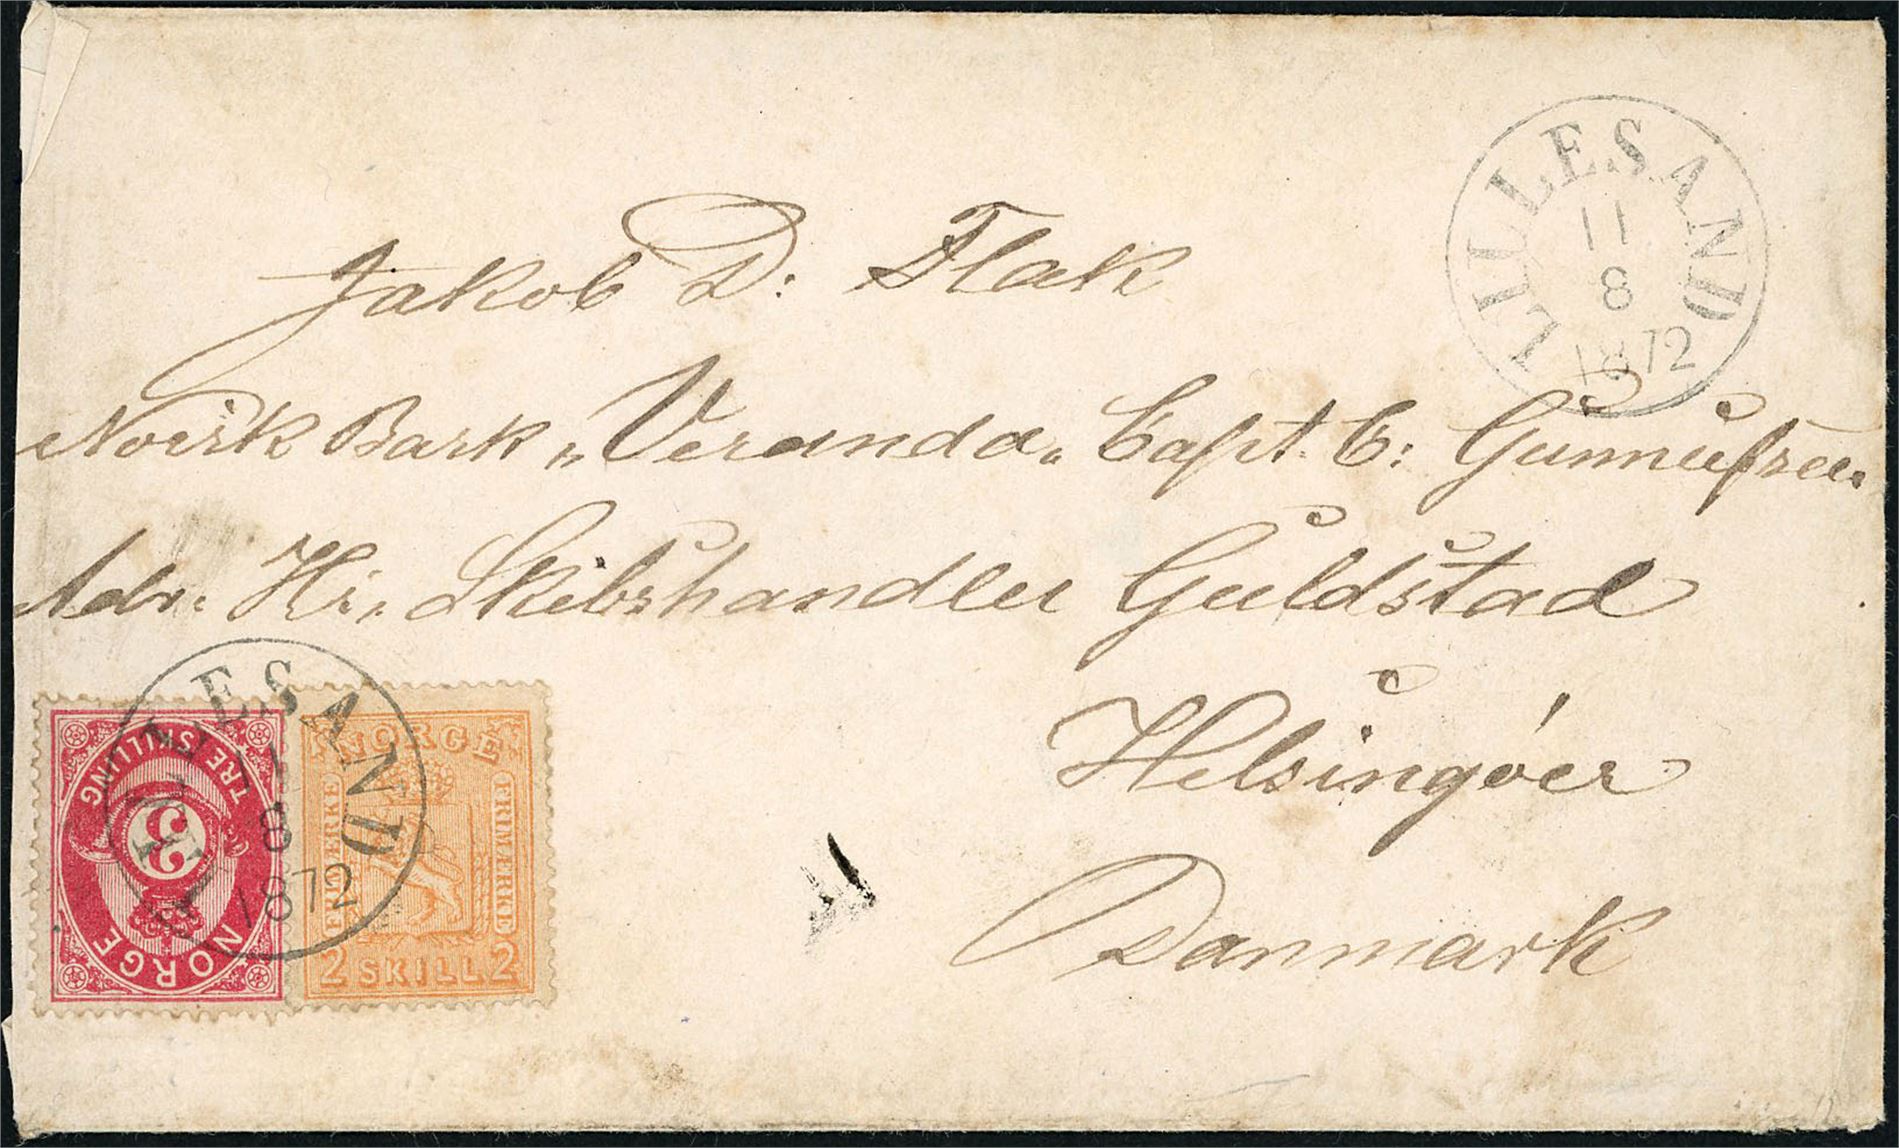 LILLESAND
11
8
1872
Jakob D: Flak
Norsk Bark „Veranda„ Capt. C: Gunnufsen.
Adr. Hr. Skibshandler Guldstad
Helsingöer
Danmark
LILLESAND
11
8
1872
TRE SKILLING
3
NORGE
NORGE
FRIMERKE
FRIMERKE
2 SKILL 2